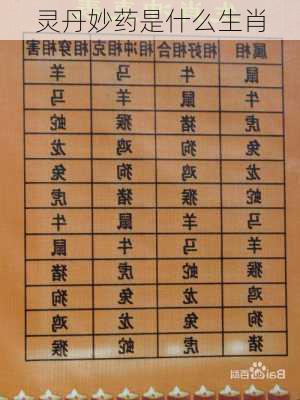 灵丹妙药是什么生肖
属相 相好相合 相冲相克 相穿相害
鼠 牛 马 羊
牛 鼠 羊 马
虎 猪 猴 蛇
兔 狗 鸡 龙
龙 鸡 狗 兔
蛇 猴 猪 虎
马 羊 鼠 牛
羊 马 牛 鼠
猴 蛇 虎 猪
鸡 龙 兔 狗
狗 兔 龙 鸡
猪 虎 蛇 猴
Bai百科